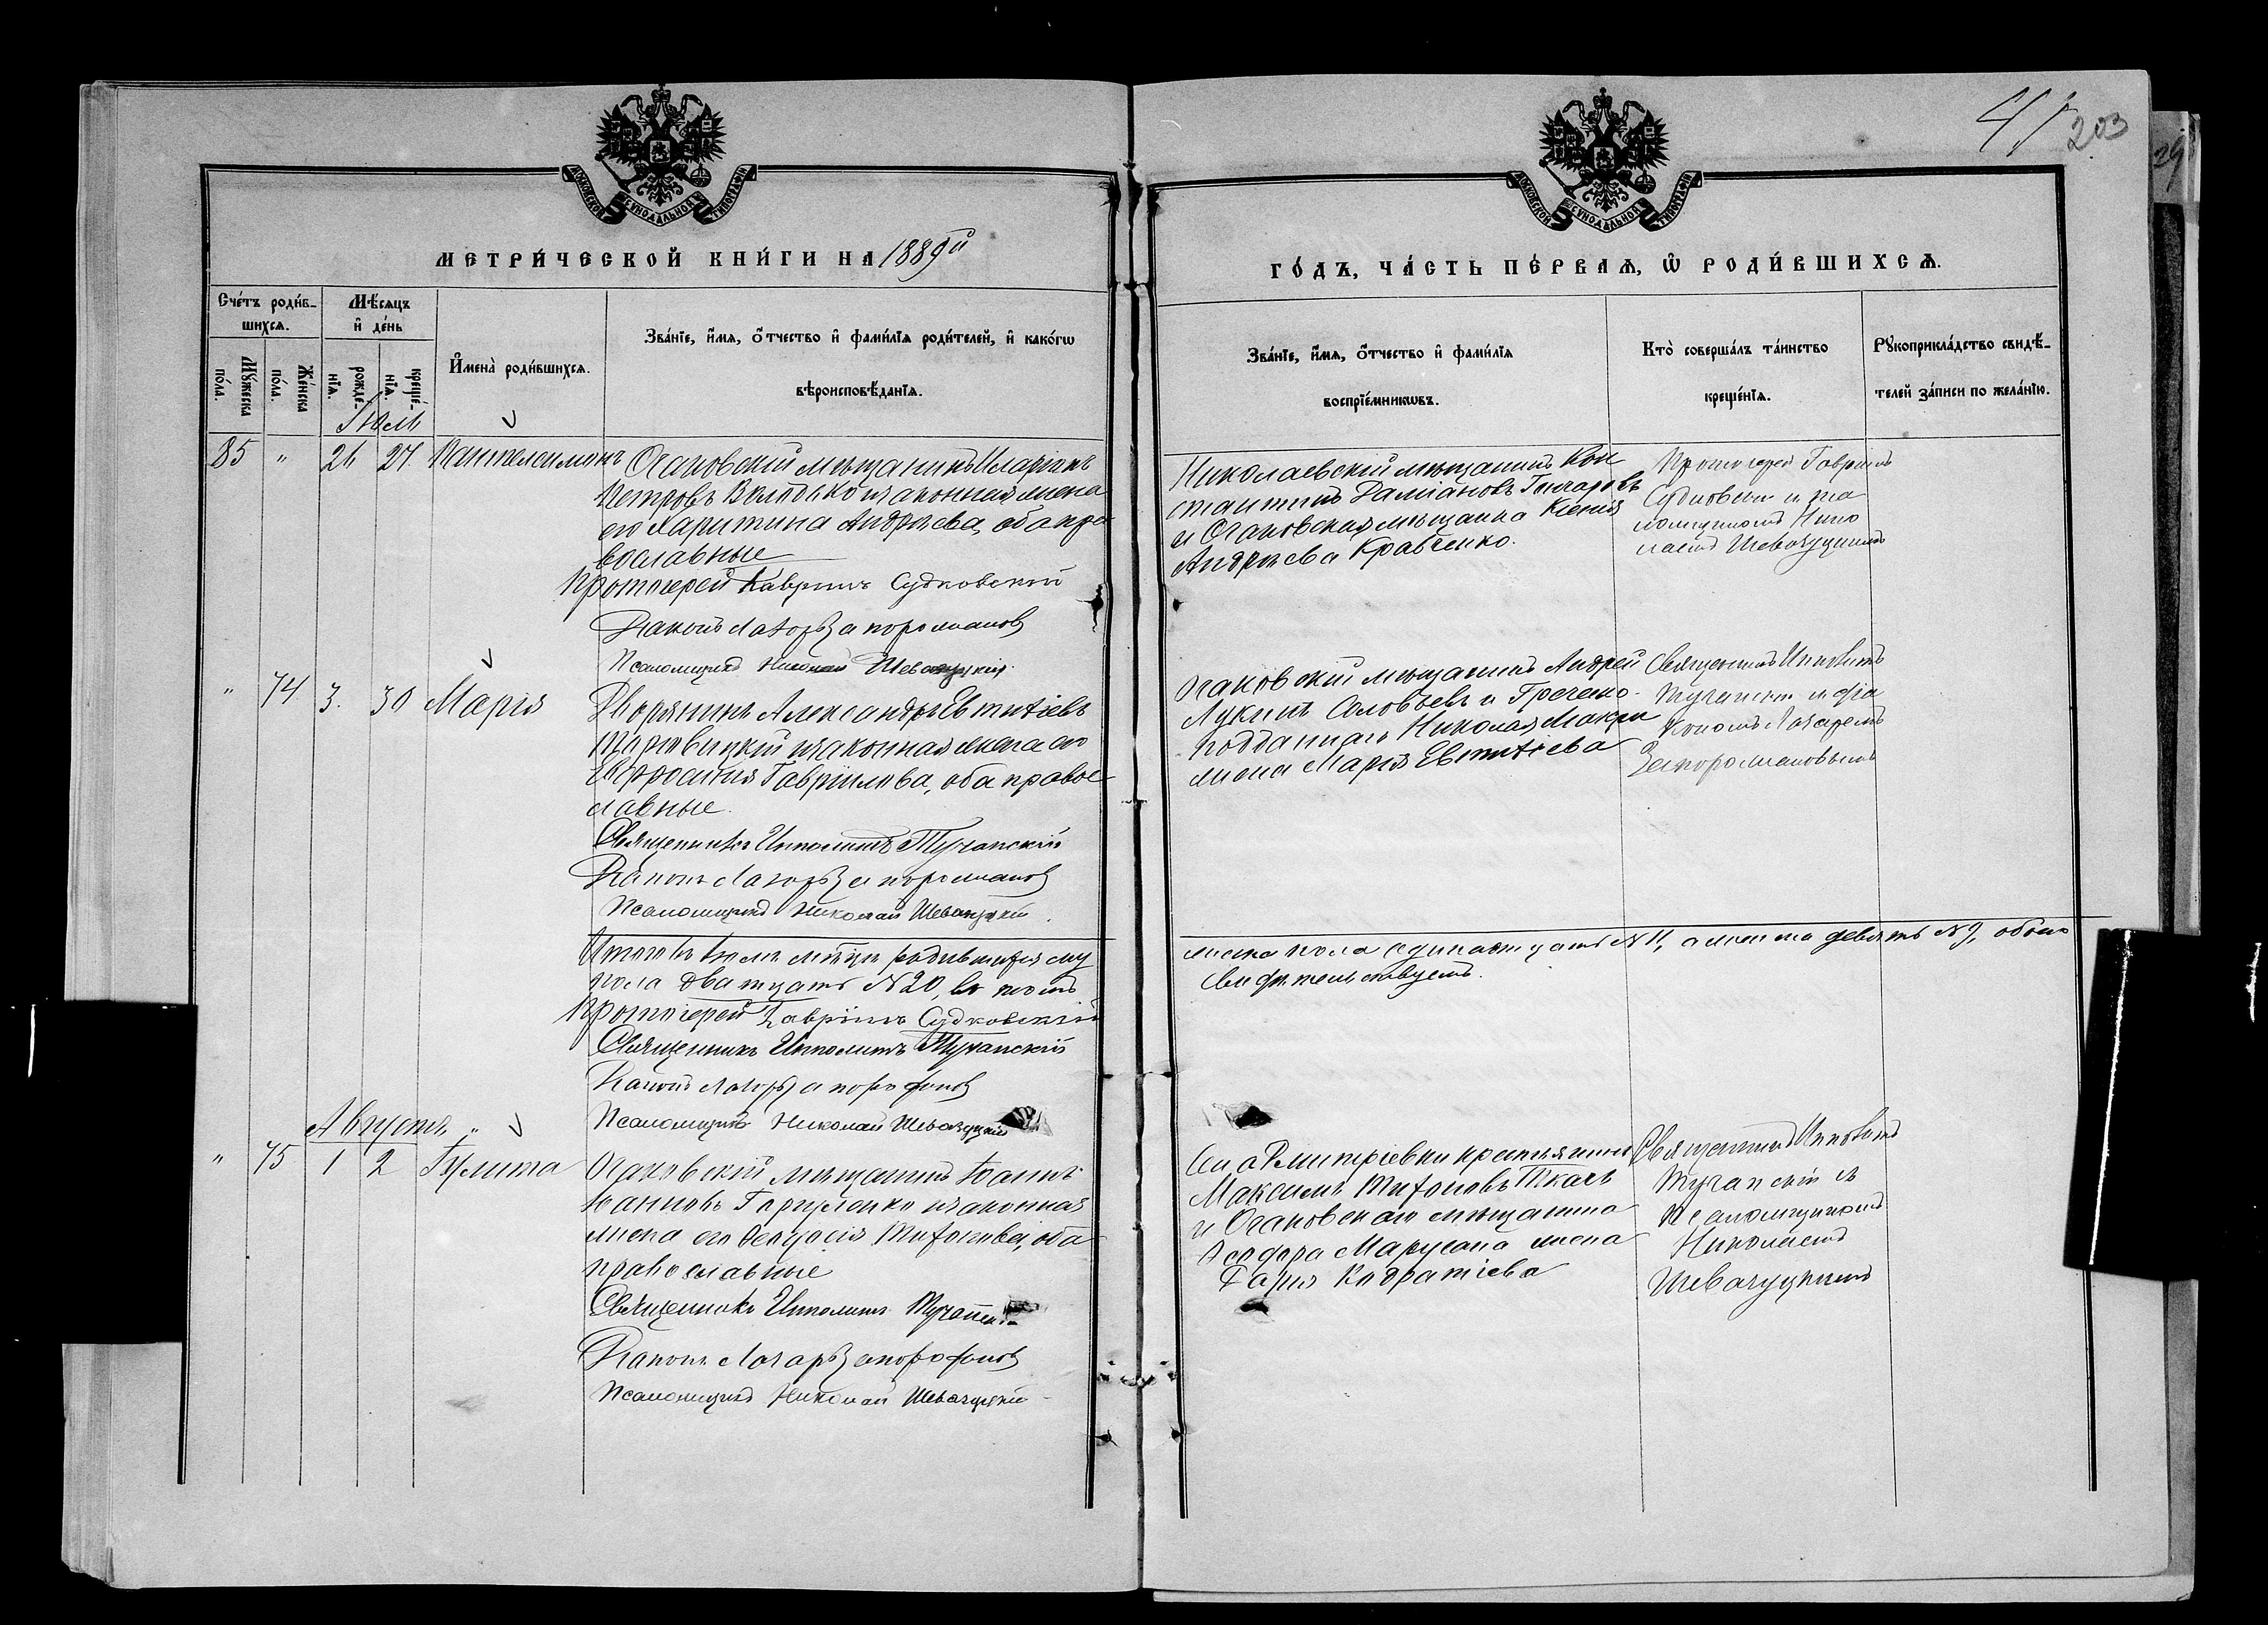 41 203
МОСКОВСКОЙ СУНОДАЛЬНОЙ ТИПОГРАФІИ
МОСКОВСКОЙ СУНОДАЛЬНОЙ ТИПОГРАФІИ
МЕТРИ́ЧЕСКОЙ КНИ́ГИ НА 1889й
ГО́ДЪ, ЧА́СТЬ ПЕ́РВАѦ, Ѡ҆ РОДИ́ВШИХСѦ.
Сче́тъ роди́в-
шихсѧ.
Мѣ́сѧцъ
и҆ де́нь
Мꙋ́жеска
по́ла.
Же́нска
по́ла.
рожде́-
нїѧ.
креще́-
нїѧ.
И҆мена̀ роди́вшихсѧ.
Зва́нїе, и҆́мѧ, ѻ҆́тчество и҆ фами́лїѧ роди́телей, и҆ како́гѡ
вѣроисповѣ́данїѧ.
Зва́нїе, и҆́мѧ, ѻ҆́тчество и҆ фами́лїѧ
воспрїе́мникѡвъ.
Кто̀ соверша́лъ та́инство
креще́нїѧ.
Рꙋкоприкла́дство свидѣ́-
телей за́писи по жела́нїю.
Іюль
85 " 26 27 Пантелеимонъ
Очаковскій мѣщанинъ Иларіонъ
Петровъ и законная жена
его Харитина Андреева, оба пра
вославные
Протоіерей Гавріилъ Судковскій
Діаконъ Лазарь Запорожановъ
Псаломщикъ Николай Шевазуцкій
Николаевскій мѣщанинъ Кон
стантинъ Даміановъ Гончаровъ
и Очаковская мѣщанка Ксенія
Андреева Кравченко.
Протоіерей Гавріилъ
Судковскій
псаломщикомъ Нико
лаемъ Шевазуцкимъ
" 74 3. 30 Марія
Дворянинъ Александръ Евтихіевъ
и законная жена его
Евфросинія Гавріилова, оба право
славные.
Священникъ Ипполитъ Тучапскій
Діаконъ Лазарь Запорожановъ
Псаломщикъ Николай Шевазуцкій
Очаковскій мѣщанинъ Андрей
Лукинъ Соловьевъ и Греческо-
подданнаго Николая Макри
жена Марія Евтихіева
Священникъ Ипполитъ
Тучапскій и діа
кономъ Лазаремъ
Запорожановымъ
Итого въ іюлѣ мѣсяцѣ родившихся му
жеска пола одинадцать N 11, а женска девять N 9, обоего
пола двадцать N 20, въ томъ
свидѣтельствуемъ.
Протоіерей Гавріилъ Судковскій
Священникъ Ипполитъ Тучапскій
Діаконъ Лазарь Запорожановъ
Псаломщикъ Николай Шевазуцкій
Августъ "
" 75 1 2 Іулита
Очаковскій мѣщанинъ Іоаннъ
Іоанновъ Гориченко и законная
жена его Ѳеодосія Тихонова, оба
православные
Священникъ Ипполитъ Тучапскій
Діаконъ Лазарь Запорожановъ
Псаломщикъ Николай Шевазуцкій
Села Дмитріевки крестьянинъ
Максимъ Тихоновъ Ткачъ
и Очаковскаго мѣщанина
Ѳеодора жена
Дарія Кодратіева
Священникъ Ипполитъ
Тучапскій съ
псаломщикомъ
Николаемъ
Шевазуцкимъ